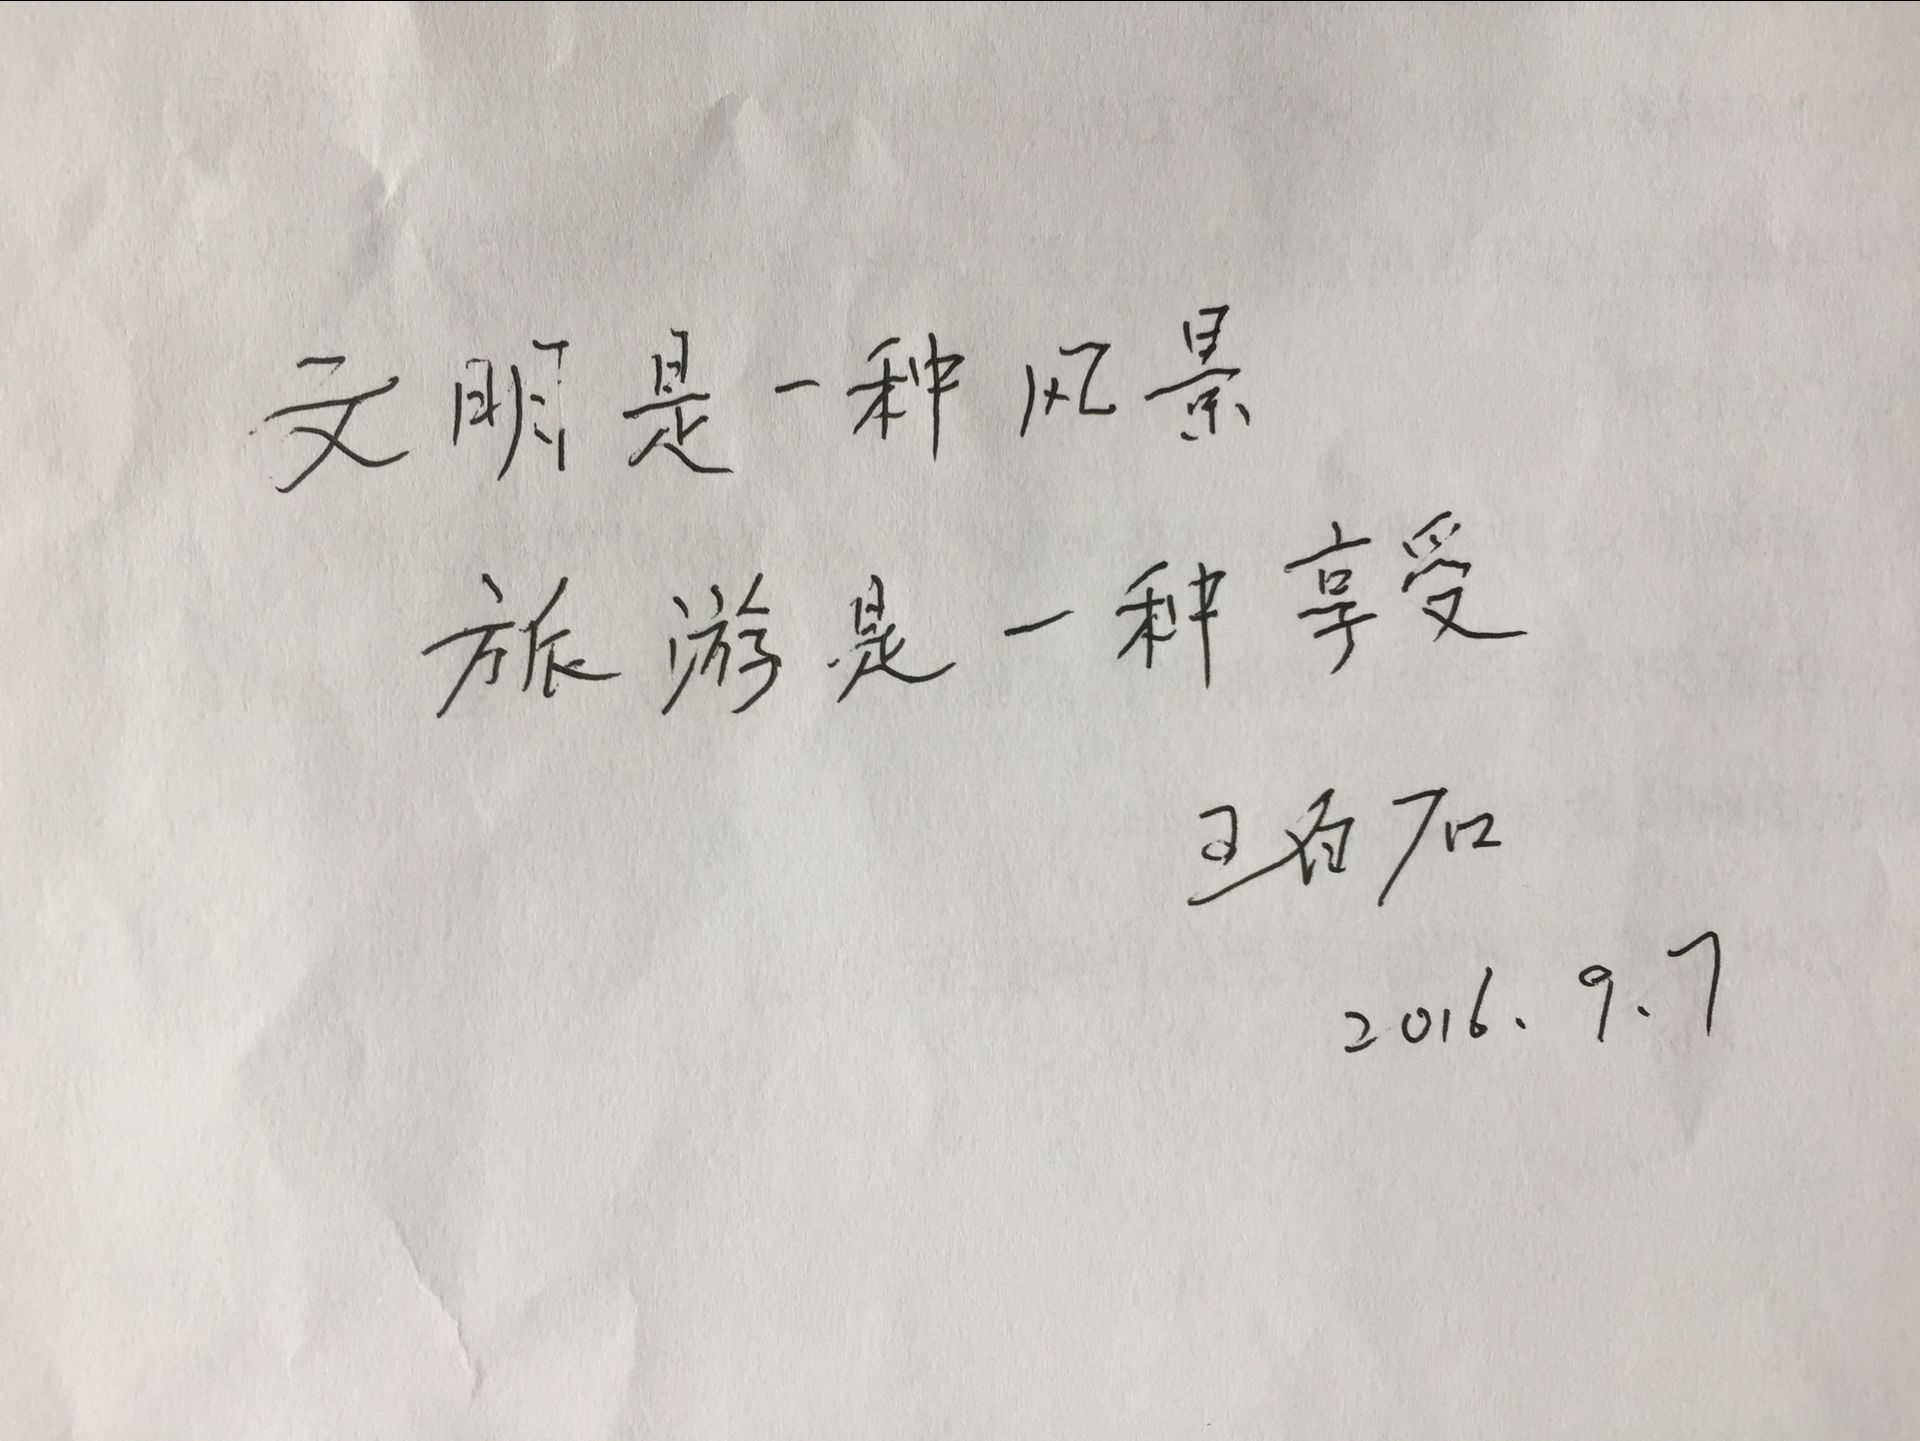 文明是一种风景
旅游是一种享受
王白石
2016.9.7